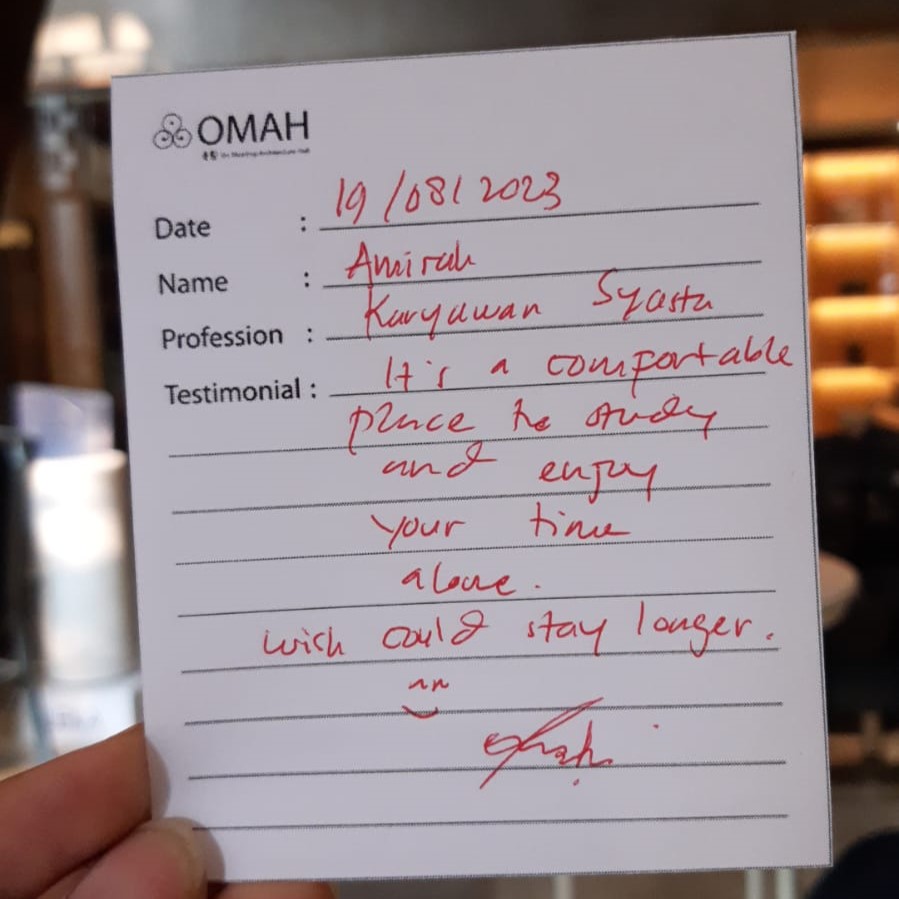 OMAH
Date : 19/08/2023
Name : Amirah
Profession : Karyawan Syasta
Testimonial : It's a comfortable
place to study
and enjoy
your time
alone.
wish could stay longer.